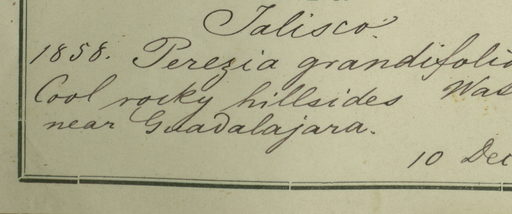 Jalisco.
1858. Perezia grandifolia
Cool rocky hillsides Was
near Guadalajara.
10 Dec